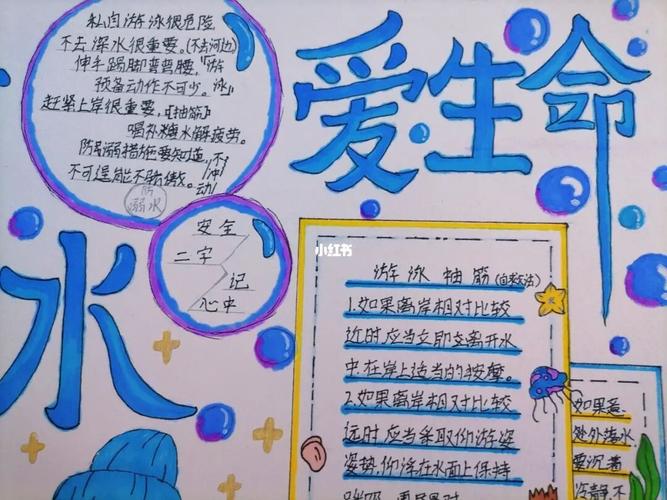 私自游泳很危险
不去深水很重要。(不去河边)
伸手踢脚弯弯腰,
游泳
预备动作不可少。
赶紧上岸很重要,【抽筋】
喝补糖水解疲劳。
防溺措施要知道,
不可逞能不骄傲。
不冲动
防溺水
爱生命
水
安全
二字
记
心中
小红书
游泳抽筋(自救方法)
1.如果离岸相对比较
近时应当立即
离开水
中在岸上适当的按摩。
2.如果离岸相对比较
远时应当采取仰游姿
姿势,仰浮在水面上保持
如果意
外落水
要沉着
冷静,不